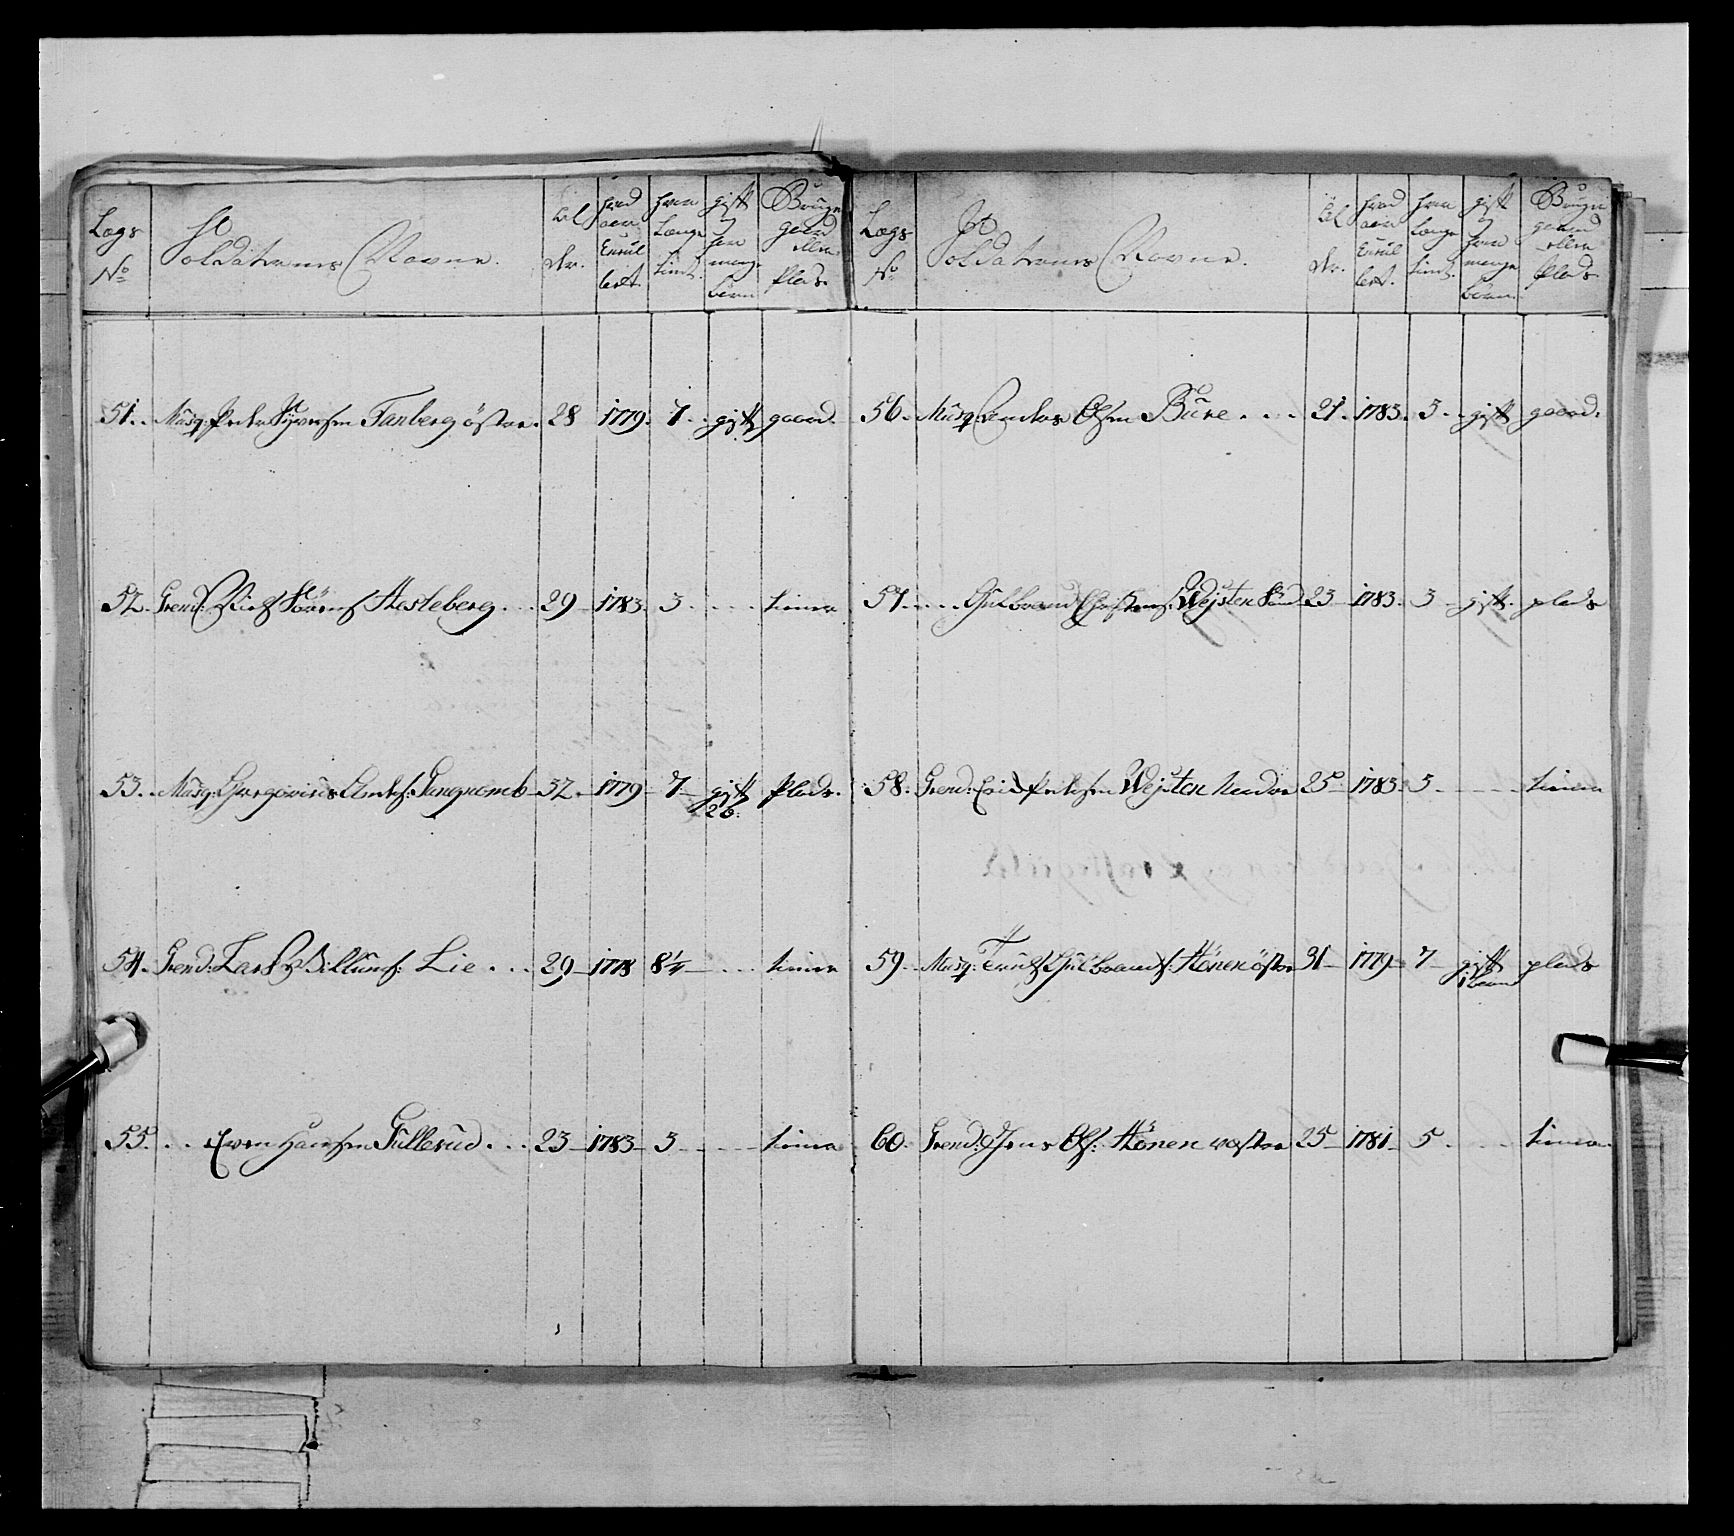 Legs No Soldaternes Navne. Al dr. hvad aar Enrul lert. hvor Længe tient. gift / hvor mange børn Bruge gaard eller Plads
51. Musq: Peder Syversen Tanberg östre. 28 1779. 7. gift gaard.
52. Grend: Niels Sörens Hesleberg 29 1783. 3 tiener
53. Musq: Gregorius 32. 1779 7 gift 2 b: Plads.
54. Grend: Lars Lie 29 1778 8½ tiener
55. Even Hansen Gulllerud 23 1783 3 tiener
Legs No Soldaternes Navne. Al dr. hvad aar Enrul lert. hvor Længe tient. gift / hvor mange børn. Bruge gaard eller Plads
56. Musq: Anders Olsen Bure 21. 1783. 3 gift gaard.
57. Gulbrand Christens: Wejsten 23 1783. 3 gift. plads
58. Grend: Pedersen Wejsten Nedre 25 1783 3 tiener
59. Musq: Gulbrands: Hönen östre 31 1779 7 gift 1 barn plads
60. Grend: Jens Ols: Hönen westre 25 1781 5 tiener